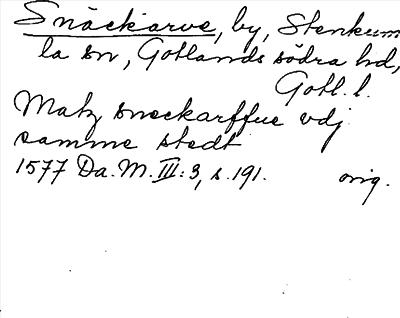 Snäckarve, by, Stenkum
la sn, Gotlands södra hd,
Gotl. l.
Matz sneckarffue vdj
samme stedt
1577 Da. M. III:3, s. 191. orig.